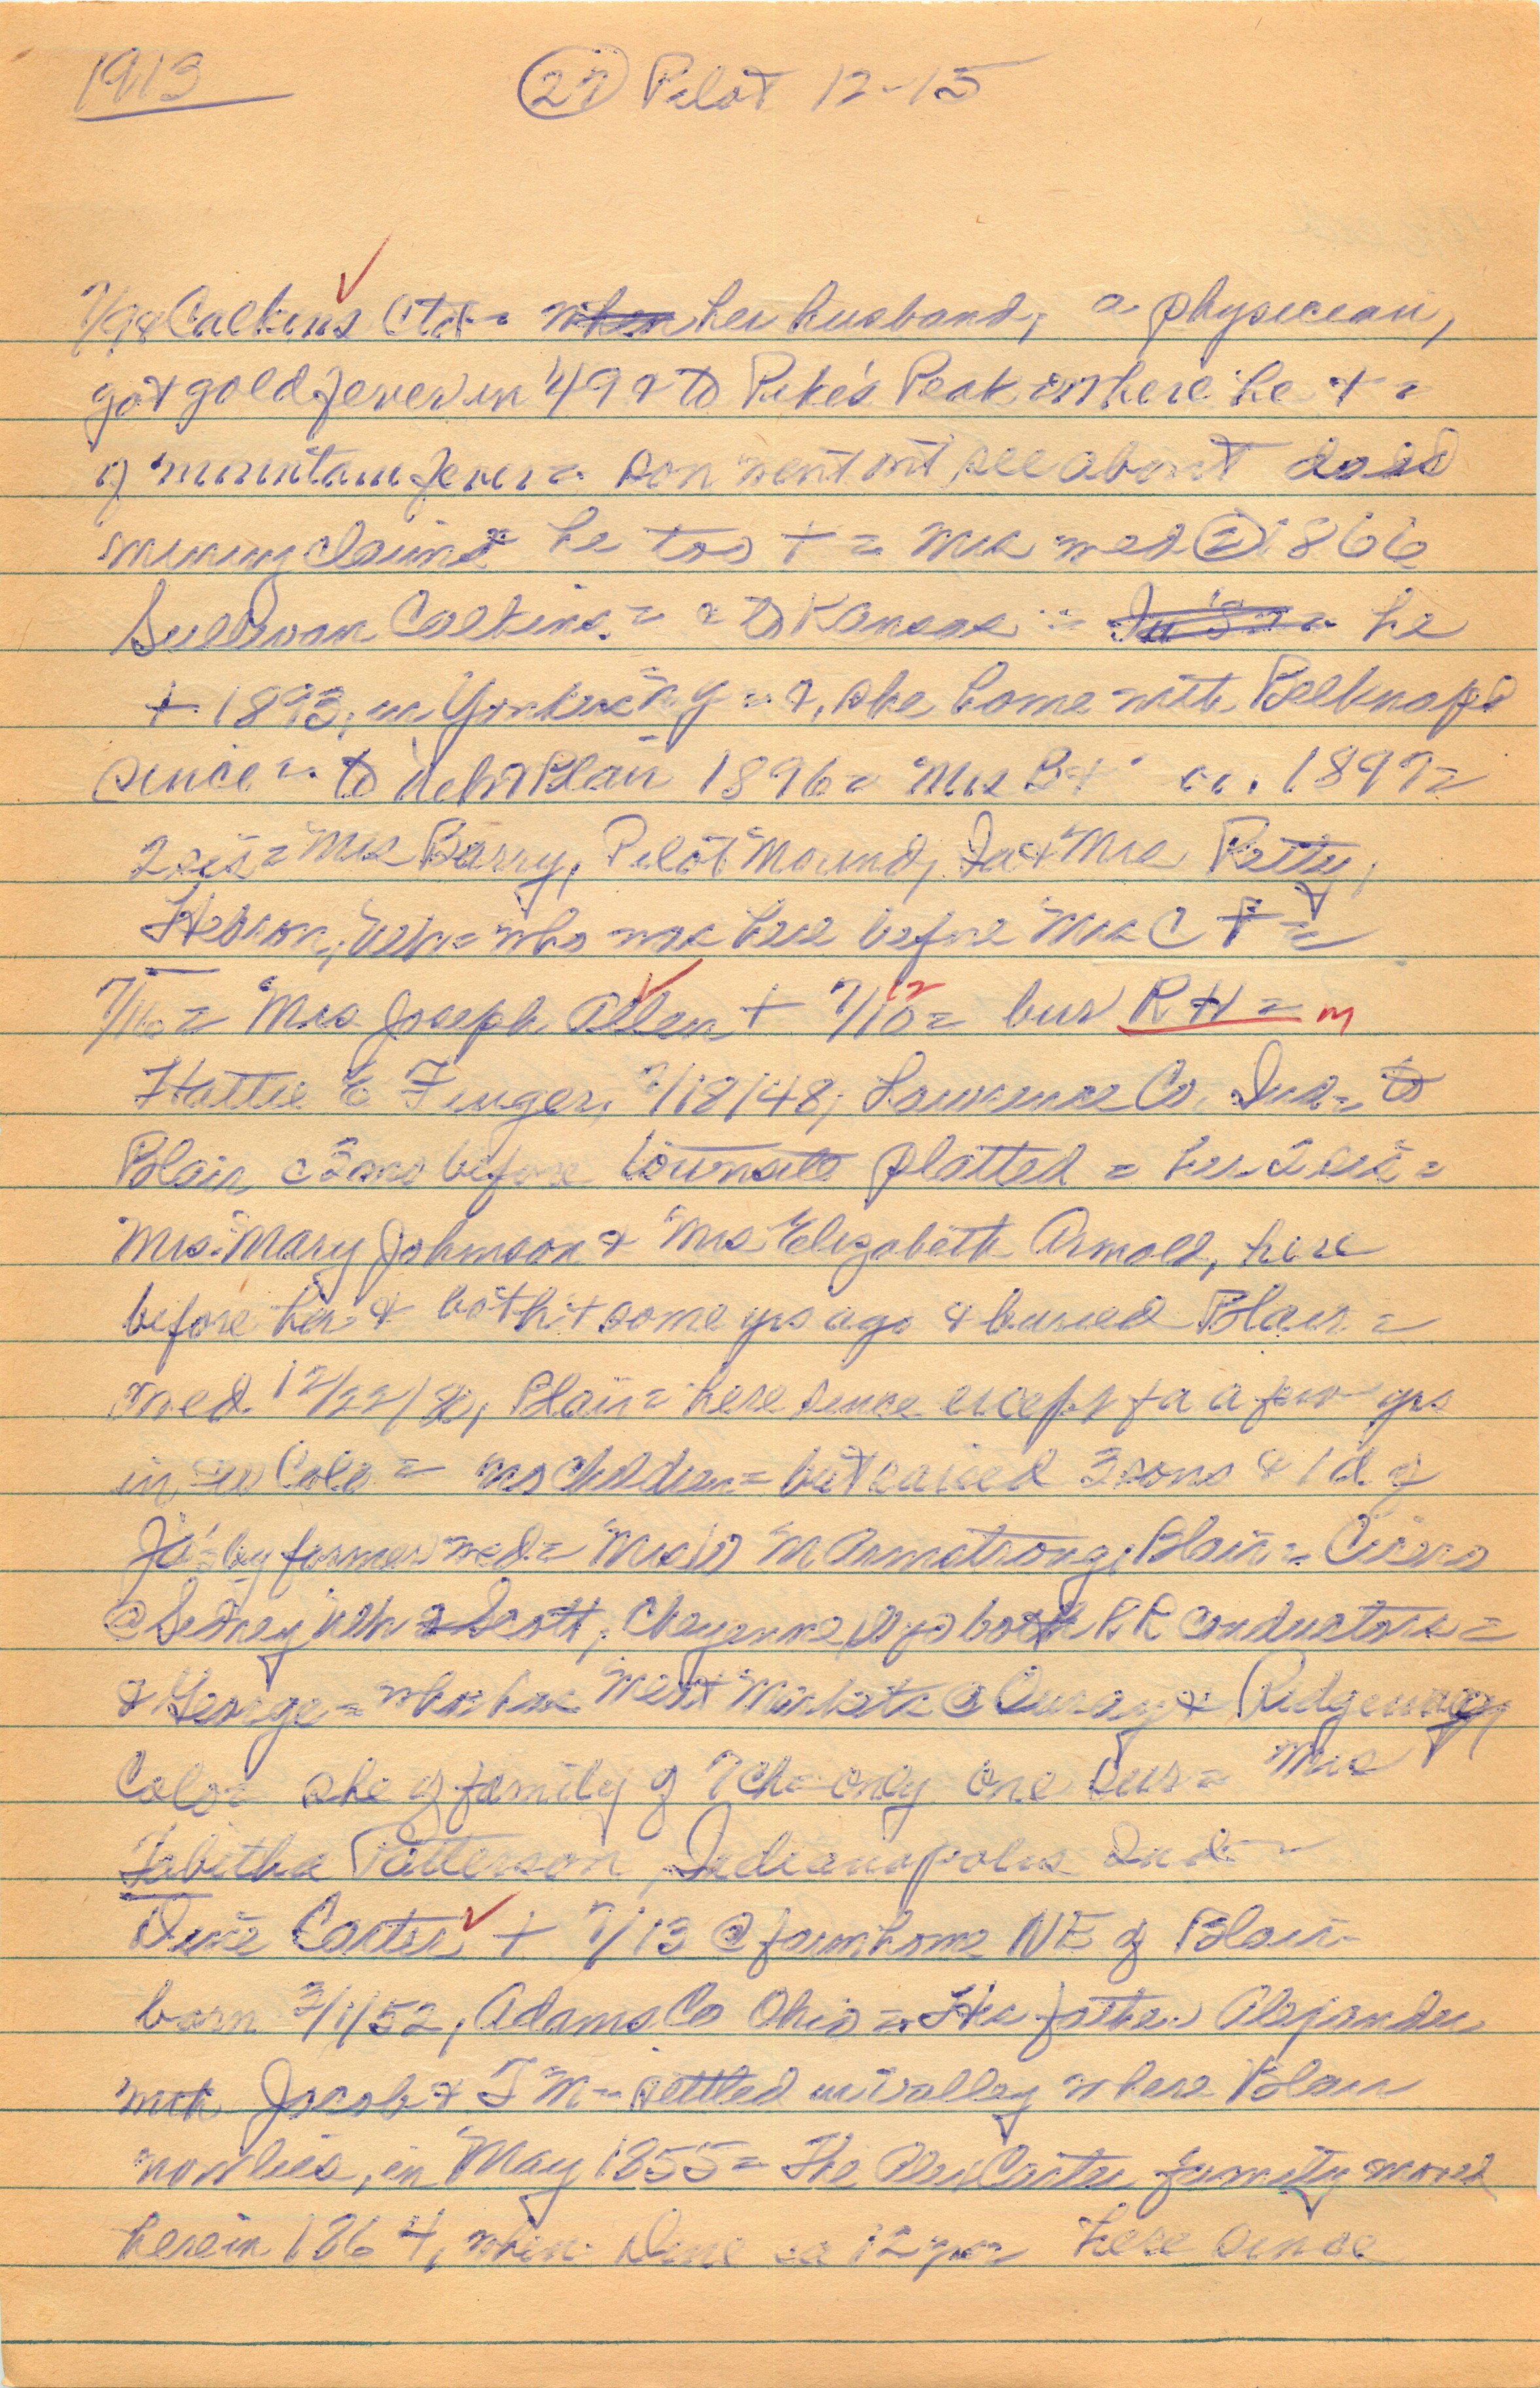 1913
(27) Pilot 12-15
Calkins Ctd = when her husband, a physician,
got gold fever in '49 & to Pike's Peak where he + =
of mountain fever = son went out see about dads
mining claims he too + = Mrs med (2) 1866
Sullivan Calkins = & to Kansas = he
+ 1893, in NY = &, she home with Belknaps
since = to Blair 1896 = Mrs B + ca. 1897 =
2 sis = Mrs Barry, Pilot Mound, Ia & Mrs Petty,
Hebron, Neb = who was here before Mrs C + =
7/16 = Mrs Joseph Allen + 7/12 = bur R H = m
Hattie E Finger, 7/18/48, Lawrence Co. Ind = to
Blair before townsite platted = her 2 sis =
Mrs. Mary Johnson & Mrs Elizabeth Arnold, here
before her & both + some yrs ago & buried Blair =
med 12/22/ , Blair = here since except for a few yrs
in Colo = no children = but raised 3 sons & 1 d of
by former med = Mrs M Armstrong, Blair = Cicero
@ Sidney Neb & Scott, Cheyenne, Wyo both RR conductors =
& George = who has meat markets @ Ouray & Ridgeway
Colo = she of family of 7 ch = only one sur = Mrs
Tabitha Patterson, Indianapolis Ind =
Carter + 7/13 @ farm home NE of Blair
born 3/1/52, Adams Co Ohio = His father Alexander
with Jacob & T M = settled in valley where Blair
now lies, in May 1855 = The Alex Carter family moved
here in 1864, when ca 12 yrs here since